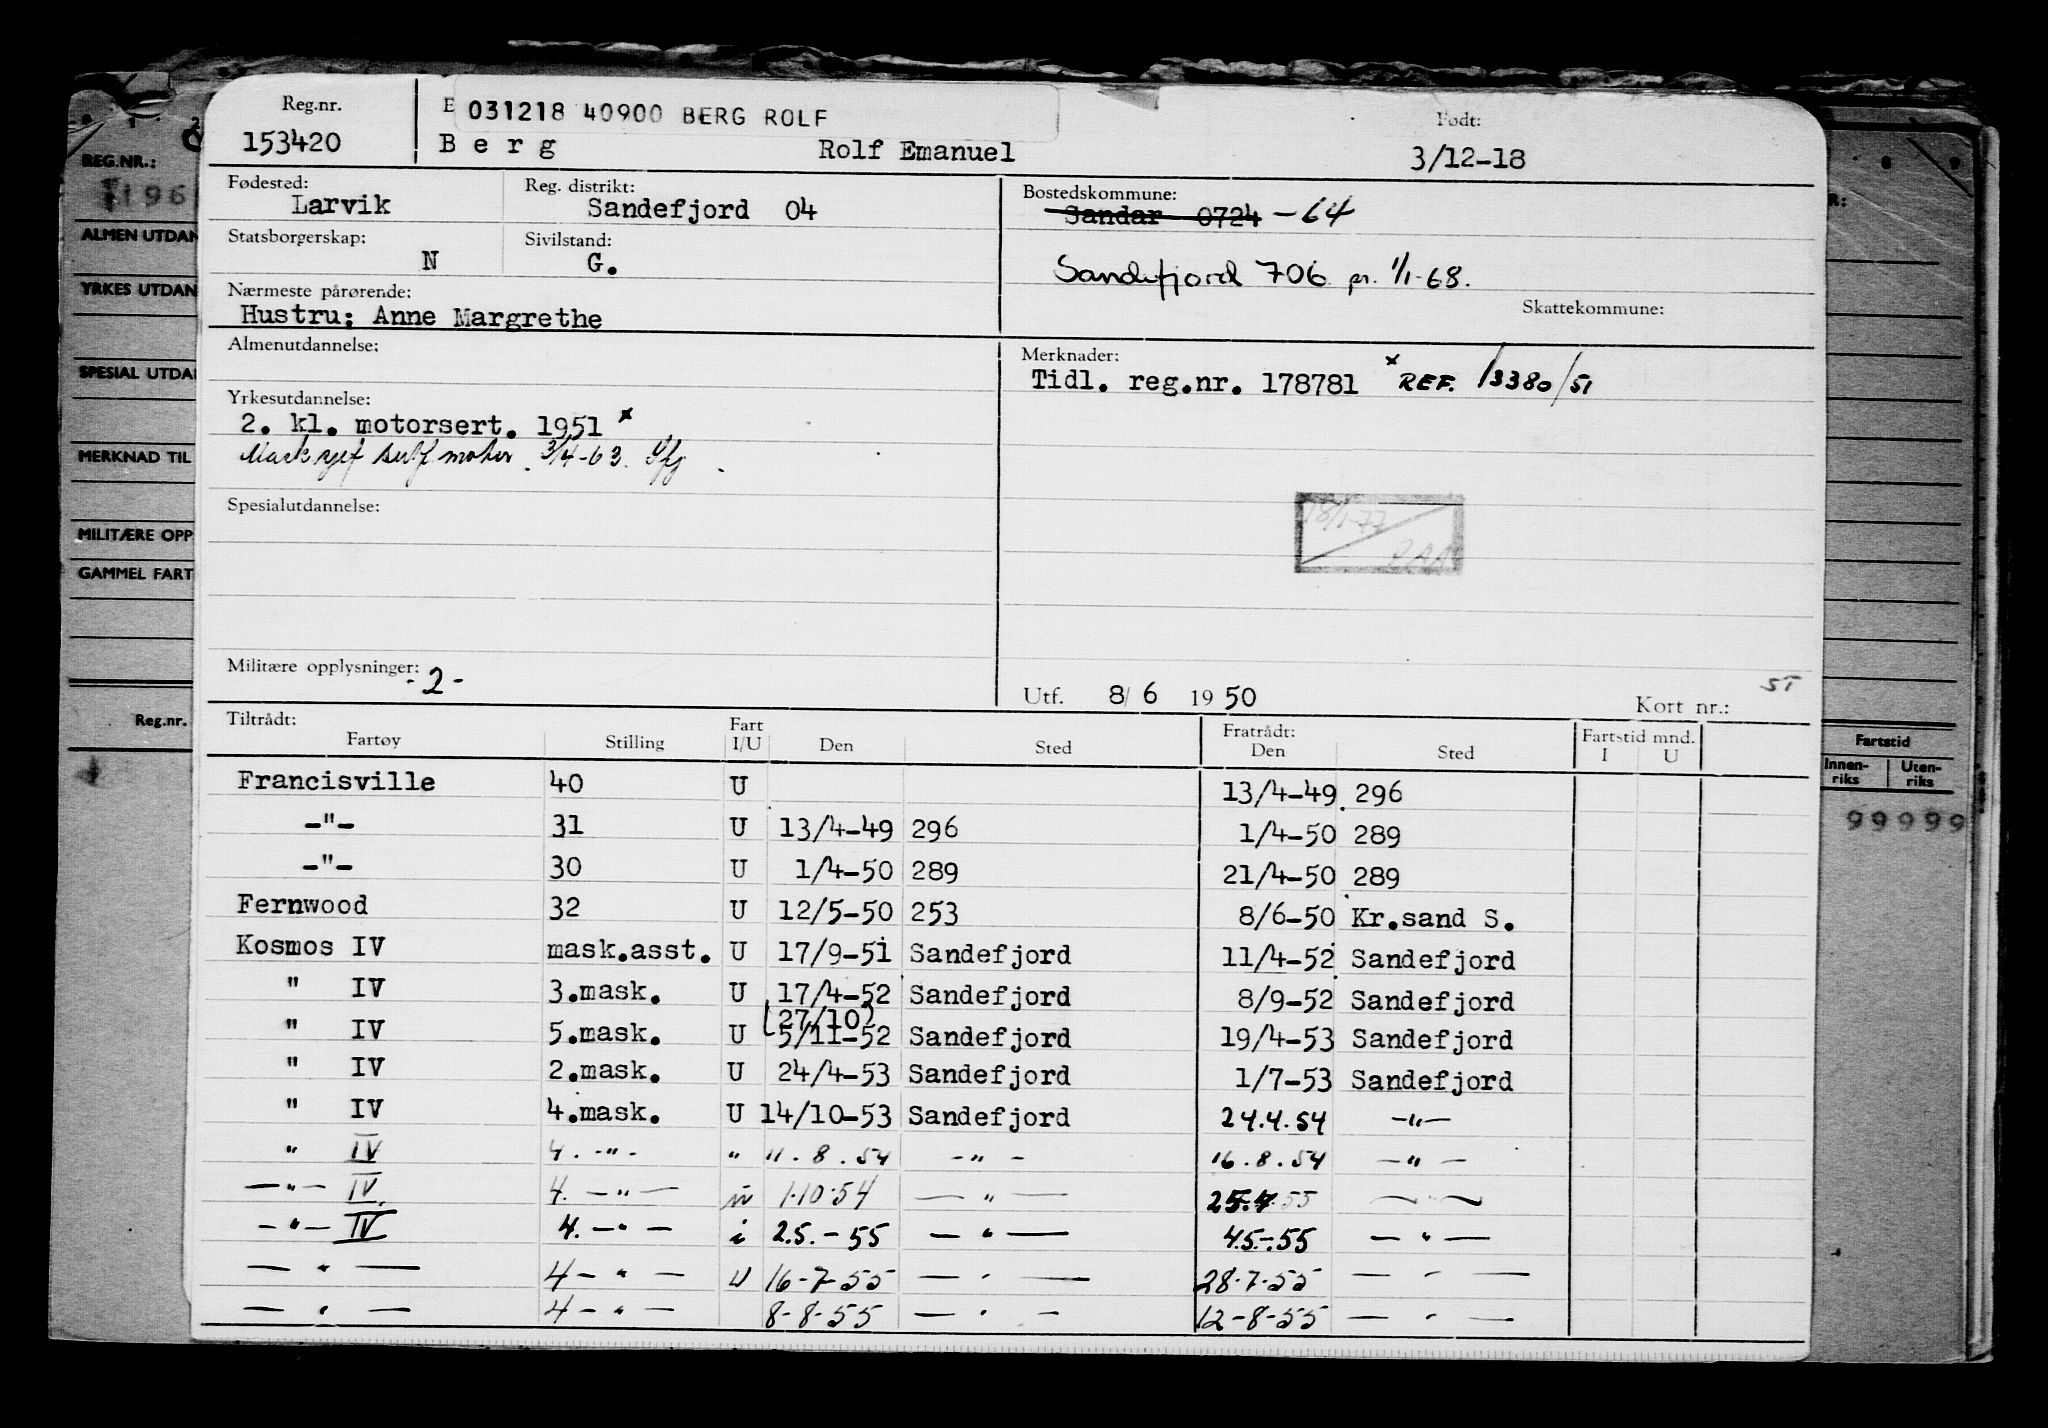 Reg.nr.
153420
031218 40900 BERG ROLF
Berg Rolf Emanuel
Født:
3/12-18
Fødested:
Larvik
Reg. distrikt:
Sandefjord 04
Bostedskommune:
Sandar 0724 -64
Statsborgerskap:
N
Sivilstand:
G.
Sandefjord 706 pr. 1/1-68.
Nærmeste pårørende:
Hustru: Anne Margrethe
Skattekommune:
Almenutdannelse:
Merknader:
Tidl. reg.nr. 178781 x REF. 13380/51
Yrkesutdannelse:
2. kl. motorsert. 1951 x
3/4-63
18/1-77
Spesialutdannelse:
Militære opplysninger:
-2-
Utf. 8/6 1950
Kort nr.:
Tiltrådt:
Fartøy Stilling Fart I/U Den Sted Fratrådt: Den Sted Fartstid mnd. I U
Francisville 40 U 13/4-49 296
-"- 31 U 13/4-49 296 1/4-50 289
-"- 30 U 1/4-50 289 21/4-50 289
Fernwood 32 U 12/5-50 253 8/6-50 Kr.sand S.
Kosmos IV mask.asst. U 17/9-51 Sandefjord 11/4-52 Sandefjord
" IV 3.mask. U 17/4-52 Sandefjord 8/9-52 Sandefjord
(27/10)
" IV 5.mask. U 5/11-52 Sandefjord 19/4-53 Sandefjord
" IV 2.mask. U 24/4-53 Sandefjord 1/7-53 Sandefjord
" IV 4.mask. U 14/10-53 Sandefjord 24.4.54 -"-
" IV 4. -"- " 11.8.54 -"- 16.8.54 -"-
-"- IV 4. -"- 1.10.54 -"- 25.4.55 -"-
-"- IV 4. -"- i 2.5.-55 -"- 4.5.-55 -"-
-"- 4-"- U 16-7-55 -"- 28.7.55 -"-
-"- 4-"- 8-8-55 -"- 12-8-55 -"-
REG.NR.:
ALMEN UTDAN
YRKES UTDAN
SPESIAL UTDA
MERKNAD TIL
MILITÆRE OPP
GAMMEL FART
Reg.nr.
R:
Fartstid
Innen-riks Uten-riks
99999